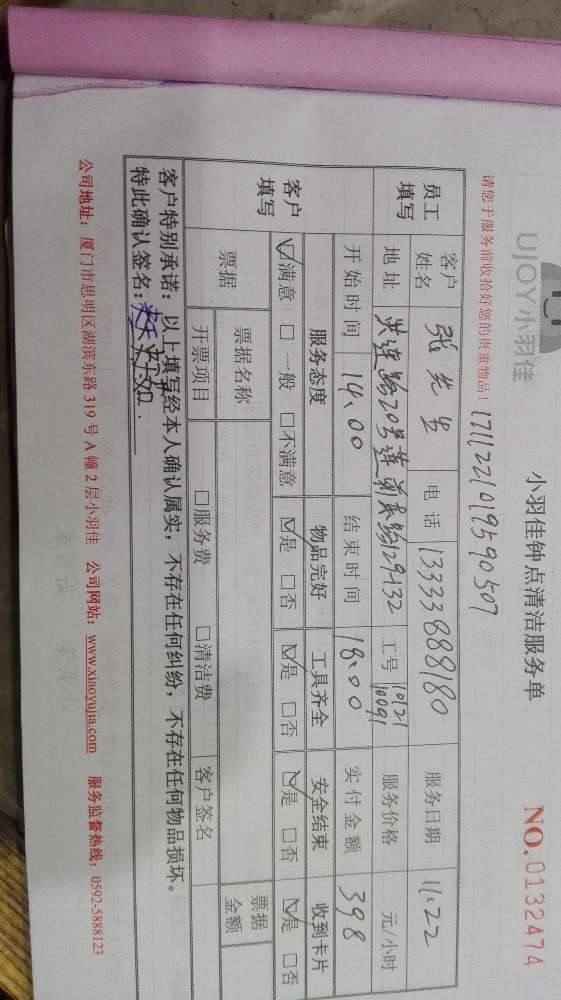 UJOY小羽佳
小羽佳钟点清洁服务单
NO. 0132474
请您于服务前收拾好您的贵重物品!
1711221019590507
员工填写
客户姓名 张先生 电话 13333888180 服务日期 11.22
地址 洪莲路20号莲前东路129-132 工号 10121 10091 服务价格 元/小时
开始时间 14:00 结束时间 18:00 实付金额 398
客户填写
服务态度 物品完好 工具齐全 安全结束 收到卡片
☑满意 □一般 □不满意 ☑是 □否 ☑是 □否 ☑是 □否 ☑是 □否
票据 票据名称 票据金额
开票项目 □服务费 □清洁费 客户签名
客户特别承诺:以上填写经本人确认属实,不存在任何纠纷,不存在任何物品损坏。
特此确认签名:
公司地址:厦门市思明区湖滨东路319号A幢2层小羽佳 公司网站:www.xiaoyujia.com 服务监督热线:0592-5888123